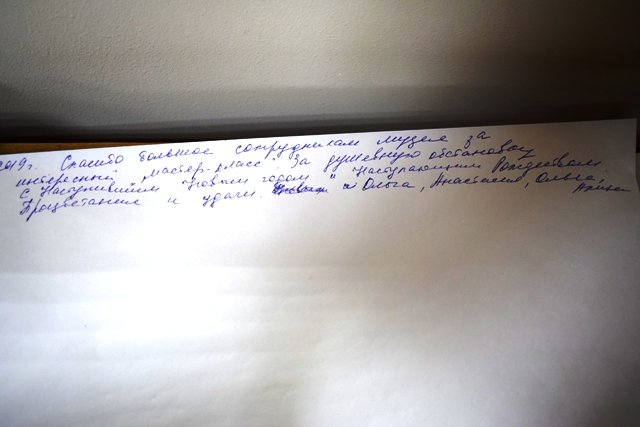 2019г. Спасибо большое сотрудникам музея за
интересный мастер-класс. За душевную обстановку
С Наступившим Новым годом и Наступающим Рождеством.
Процветания и удачи. Ольга, Анастасия, Ольга,